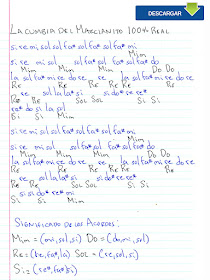 DESCARGAR
LA CUMBIA DEL MARCIANITO 100% REAL
si re mi sol sol fa* sol fa* sol fa* mi
Mim
si re mi sol sol fa* sol fa* sol fa* mi
Mim Mim Mim Mim Do Do
la sol fa* mi re do re re la sol fa* mi re do re
Re Re Re Re Re Re
re sol la la si si do* re re*
Re Re Sol Sol Si Si
re* do si la sol
Si Si Mim
si re mi sol sol fa* sol fa* sol fa* mi
Mim
si re mi sol sol fa* sol fa* sol fa* mi
Mim Mim Mim Mim Do Do
la sol fa* mi re do re re la sol fa* mi re do re
Re Re Re Re Re Re
re sol la la si si do* re re*
Re Re Sol Sol Si Si
si si do* re* mi
Si Si Mim
SIGNIFICADO DE LOS ACORDES:
Mim = (mi, sol, si) Do = (do, mi, sol)
Re = (re, fa*, la) Sol = (re, sol, si)
Si = (re*, fa*, si)